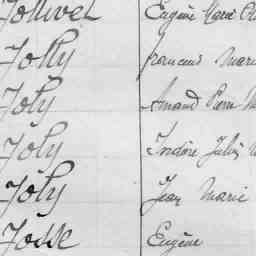 Jollivel Eugène Marie
Jolly François Marie
Joly Amand Pierre
Joly Isidore Julien
Joly Jean Marie
Josse Eugène